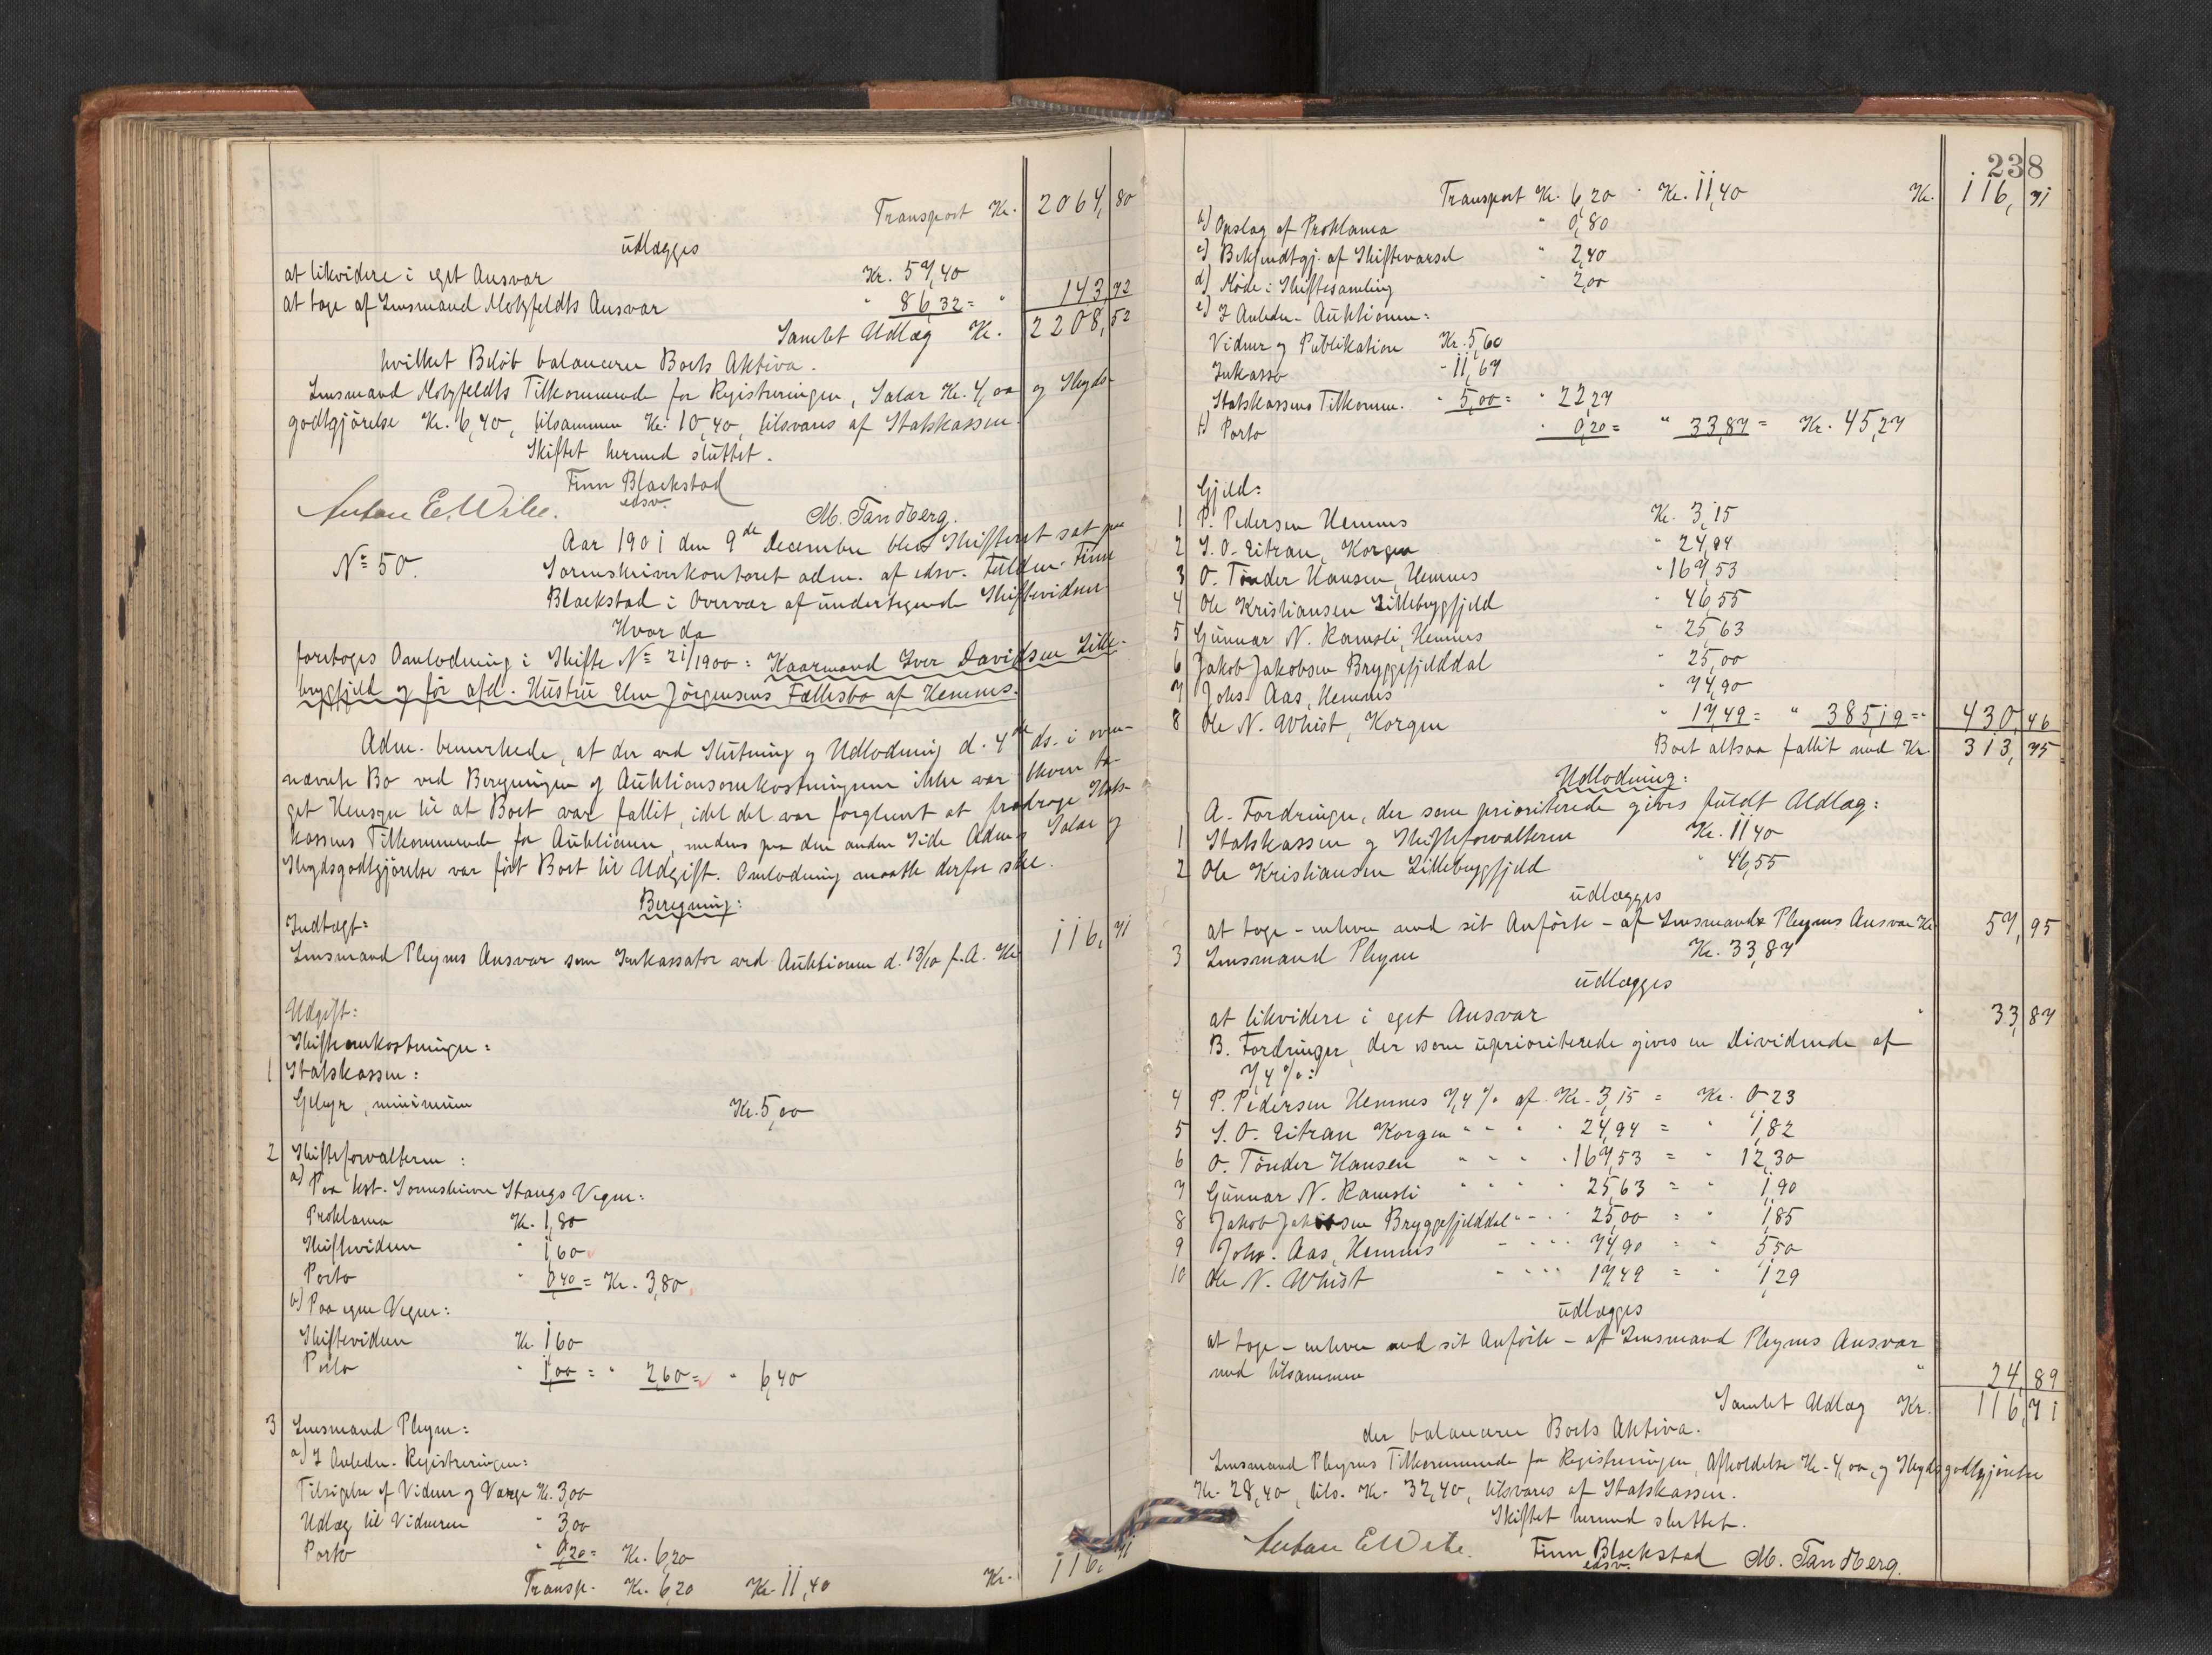 Transport Kr. 2064,80
udlægges
at likvidere i eget Ansvar Kr. 57,40
at tage af Lensmand Motzfeldts Ansvar " 86,32 = " 143,72
Samlet Udlæg Kr. 2208,52
hvilket Beløb balancerer Boets Aktiva.
Lensmand Motzfeldts Tilkommende for Registreringen, Salær Kr. 4,00 og Skyds-
godtgjørelse Kr. 6,40, tilsammen Kr. 10,40, tilsvares af Statskassen.
Skiftet hermed sluttet.
Finn Blackstad
edsv.
Anton E. Wibe. M. Tandberg.
No 50.
Aar 1901 den 9de December blev Skifteret sat paa
Sorenskriverkontoret adm. af edsv. Fuldm. Finn
Blackstad i Overvær af undertegnede Skiftevidner
Hvor da
foretoges Omlodning i Skifte No 21/1900: Kaarmand Iver Davidsen Lille-
brygfjeld og før afd. Hustru Elen Jörgensens Fællesbo af Hemnes.
Adm. bemerkede, at der ved Slutning og Udlodning d. 4de ds. i oven-
nævnte Bo ved Beregningen af Auktionsomkostningerne ikke var bleven ta-
get Hensyn til at Boet var fallit, idet det var forglemt at fradrage Stats-
kassens Tilkommende for Auktionen, medens paa den anden Side Adm.s Salær og
Skydsgodtgjörelse var fört Boet til Udgift. Omlodning maatte derfor ske.
Beregning:
Indtægt:
Lensmand Pleyms Ansvar som Inkassator ved Auktionen d. 13/10 f. A. Kr. 116,71
Udgift:
Skifteomkostninger:
1 Statskassen:
Gebyr, minimum Kr. 5,00
2 Skifteforvalteren:
a) Paa kst. Sorenskriver Stangs Vegne:
Proklama Kr. 1,80
Skiftevidner " 1,60
Porto " 0,40 = Kr. 3,80
b) Paa egne Vegne:
Skiftevidner Kr. 1,60
Porto " 1,00 = " 2,60 = " 6,40
3 Lensmand Pleym:
a) I Anledn. Registreringen:
Tilsigelse af Vidner og Værge Kr. 3,00
Udlæg til Vidnerne " 3,00
Porto " 0,20 = Kr. 6,20
Transp. Kr. 6,20 Kr. 11,40 Kr. 116,71
238
Transport Kr. 6,20 " Kr. 11,40 Kr. 116,71
b) Opslag af Proklama " 0,80
c) Bekjendtgj. af Skiftevarsel " 2,40
d) Møde i Skiftesamling " 2,00
e) I Anledn. Auktionen:
Vidner og Publikation Kr. 5,60
Inkasso " 11,67
Statskassens Tilkomm. " 5,00 = " 22,27
f) Porto " 0,20 = " 33,87 = Kr. 45,27
Gjeld:
1 P. Pedersen Hemnes Kr. 3,15
2 S. O. Eitran, Korgen " 24,94
3 O. Tønder Hansen, Hemnes " 167,53
4 Ole Kristiansen Lillebrygfjeld " 46,55
5 Gunnar N. Ramsli, Hemnes " 25,63
6 Jakob Jakobsen Bryggefjelddal " 25,00
7 Johs. Aas, Hemnes " 74,90
8 Ole N. Whist, Korgen " 17,49 = " 385,19 = " 430,46
Boet altsaa fallit med Kr. 313,75
Udlodning:
A. Fordringer, der som prioriterede gives fuldt Udlæg:
1 Statskassen og Skifteforvalteren Kr. 11,40
2 Ole Kristiansen Lillebrygfjeld " 46,55
udlægges
at tage - enhver med sit Anførte - af Lensmand Pleyms Ansvar Kr. 57,95
3 Lensmand Pleym Kr. 33,87
udlægges
at likvidere i eget Ansvar " 33,87
B. Fordringer, der som uprioriterede gives en Dividende af
7,4 %:
4 P. Pedersen Hemnes 7,4 % af Kr. 3,15 = Kr. 0,23
5 S. O. Eitran Korgen " " " " 24,94 = " 1,82
6 O. Tönder Hansen " " " " 167,53 = " 12,30
7 Gunnar N. Ramsli " " " " 25,63 = " 1,90
8 Jakob Jakobsen Bryggefjelddal " " " 25,00 = " 1,85
9 Johs. Aas, Hemnes " " " " 74,90 = " 5,50
10 Ole N. Whist " " " " 17,49 = " 1,29
udlægges
at tage - enhver med sit Anførte - af Lensmand Pleyms Ansvar
med tilsammen " 24,89
Samlet Udlæg Kr. 116,71
der balancerer Boets Aktiva.
Lensmand Pleyms Tilkommende for Registreringen, Afholdelse Kr. 4,00, og Skydsgodtgjörelse
Kr. 28,40, tils. Kr. 32,40, tilsvares af Statskassen.
Skiftet hermed sluttet.
Anton E Wibe. Finn Blackstad M. Tandberg.
edsv.